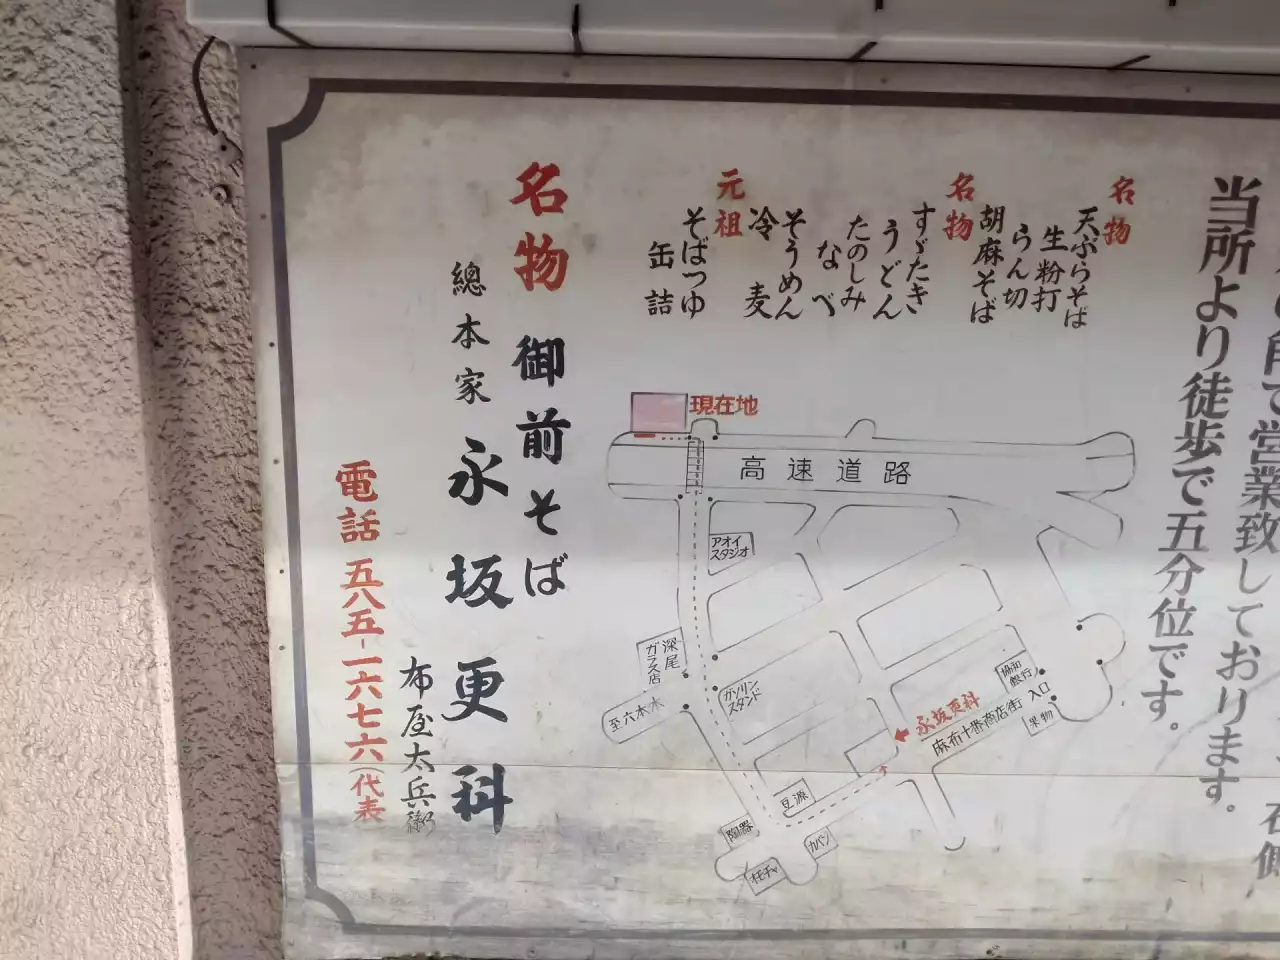 で営業致しております。
当所より徒歩で五分位です。
名物
天ぷらそば
生粉打
らん切
胡麻そば
名物
すゞたき
うどん
たのしみ
なべ
そうめん
冷麦
元祖
そばつゆ
缶詰
名物 御前そば
總本家 永坂更科
布屋太兵衛
電話 五八五-一六七六(代表
現在地
高速道路
アオイ
スタジオ
深尾
ガラス店
ガソリン
スタンド
至六本木
協和
銀行
入口
果物
永坂更科
麻布十番商店街
豆源
陶器
カバン
オモチャ